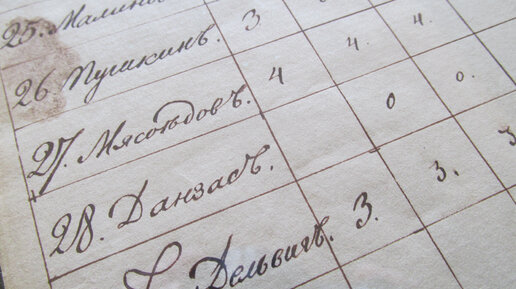 25. Малино
26. Пушкинъ. 3
27. Мясоѣдовъ. 4 4. 4.
28. Данзасъ. 0 0.
Дельвигъ. 3. 3. 3